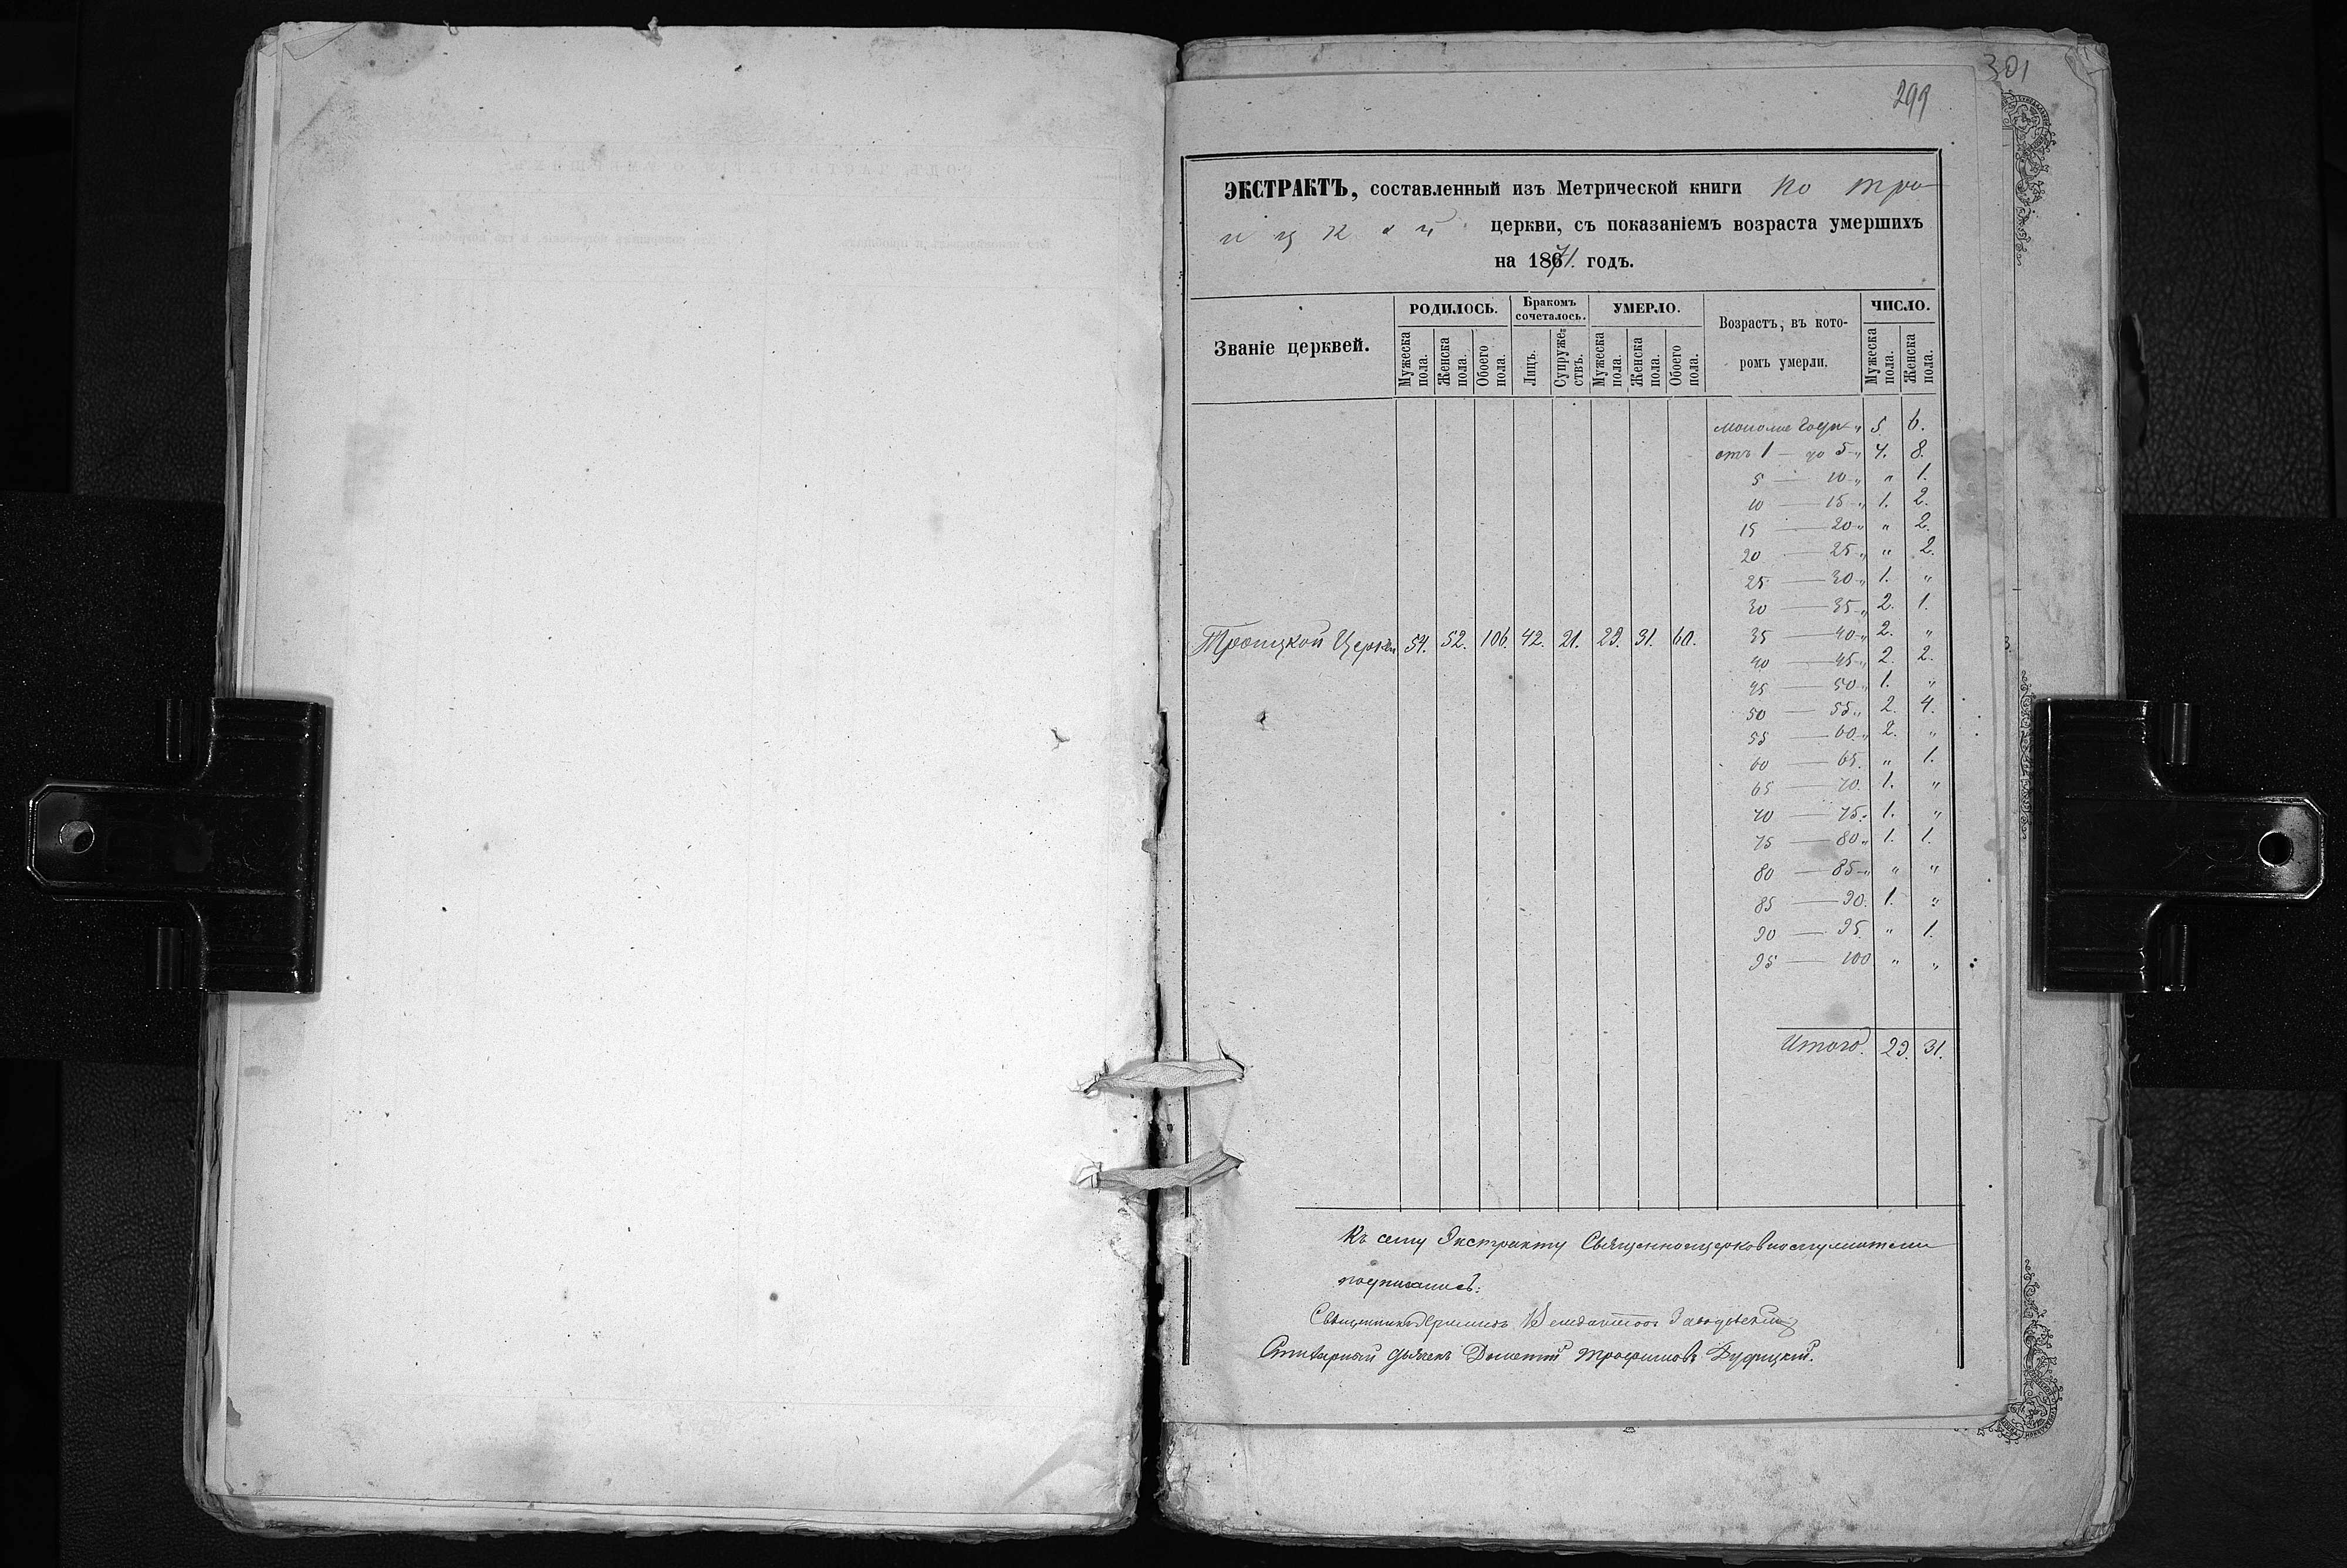 301
299
ЭКСТРАКТЪ, составленный изъ Метрической книги по Тро-
ицкой церкви, съ показаніемъ возраста умершихъ
на 1871. годъ.
Званіе церквей. РОДИЛОСЬ. Бракомъ сочеталось. УМЕРЛО. Возрастъ, въ кото-ромъ умерли. ЧИСЛО.
Мужеска пола. Женска пола. Обоего пола. Лицъ. Супружествъ. Мужеска пола. Женска пола. Обоего пола. Мужеска пола. Женска пола.
года „ 5 6.
отъ 1 — до 5 „ 4. 8.
5 — 10 „ „ 1.
10 — 15 „ 1. 2.
15 — 20 „ „ 2.
20 — 25 „ „ 2.
25 — 30 „ 1. „
30 — 35 „ 2. 1.
Троицкой Церкви 54. 52. 106. 42. 21. 29. 31. 60. 35 — 40 „ 2. „
40 — 45 „ 2. 2.
45 — 50 „ 1. „
50 — 55 „ 2. 4.
55 — 60 „ 2. „
60 — 65. „ 1.
65 — 70. 1. „
70 — 75. 1. „
75 — 80 „ 1. 1.
80 — 85 „ „ „
85 — 90. 1. „
90 — 95. „ 1.
95 — 100 „ „
Итого. 29. 31.
Къ сему Экстракту Священноцерковнослужители
подписались:
Священникъ
дьячекъ Дометій Трофимовъ